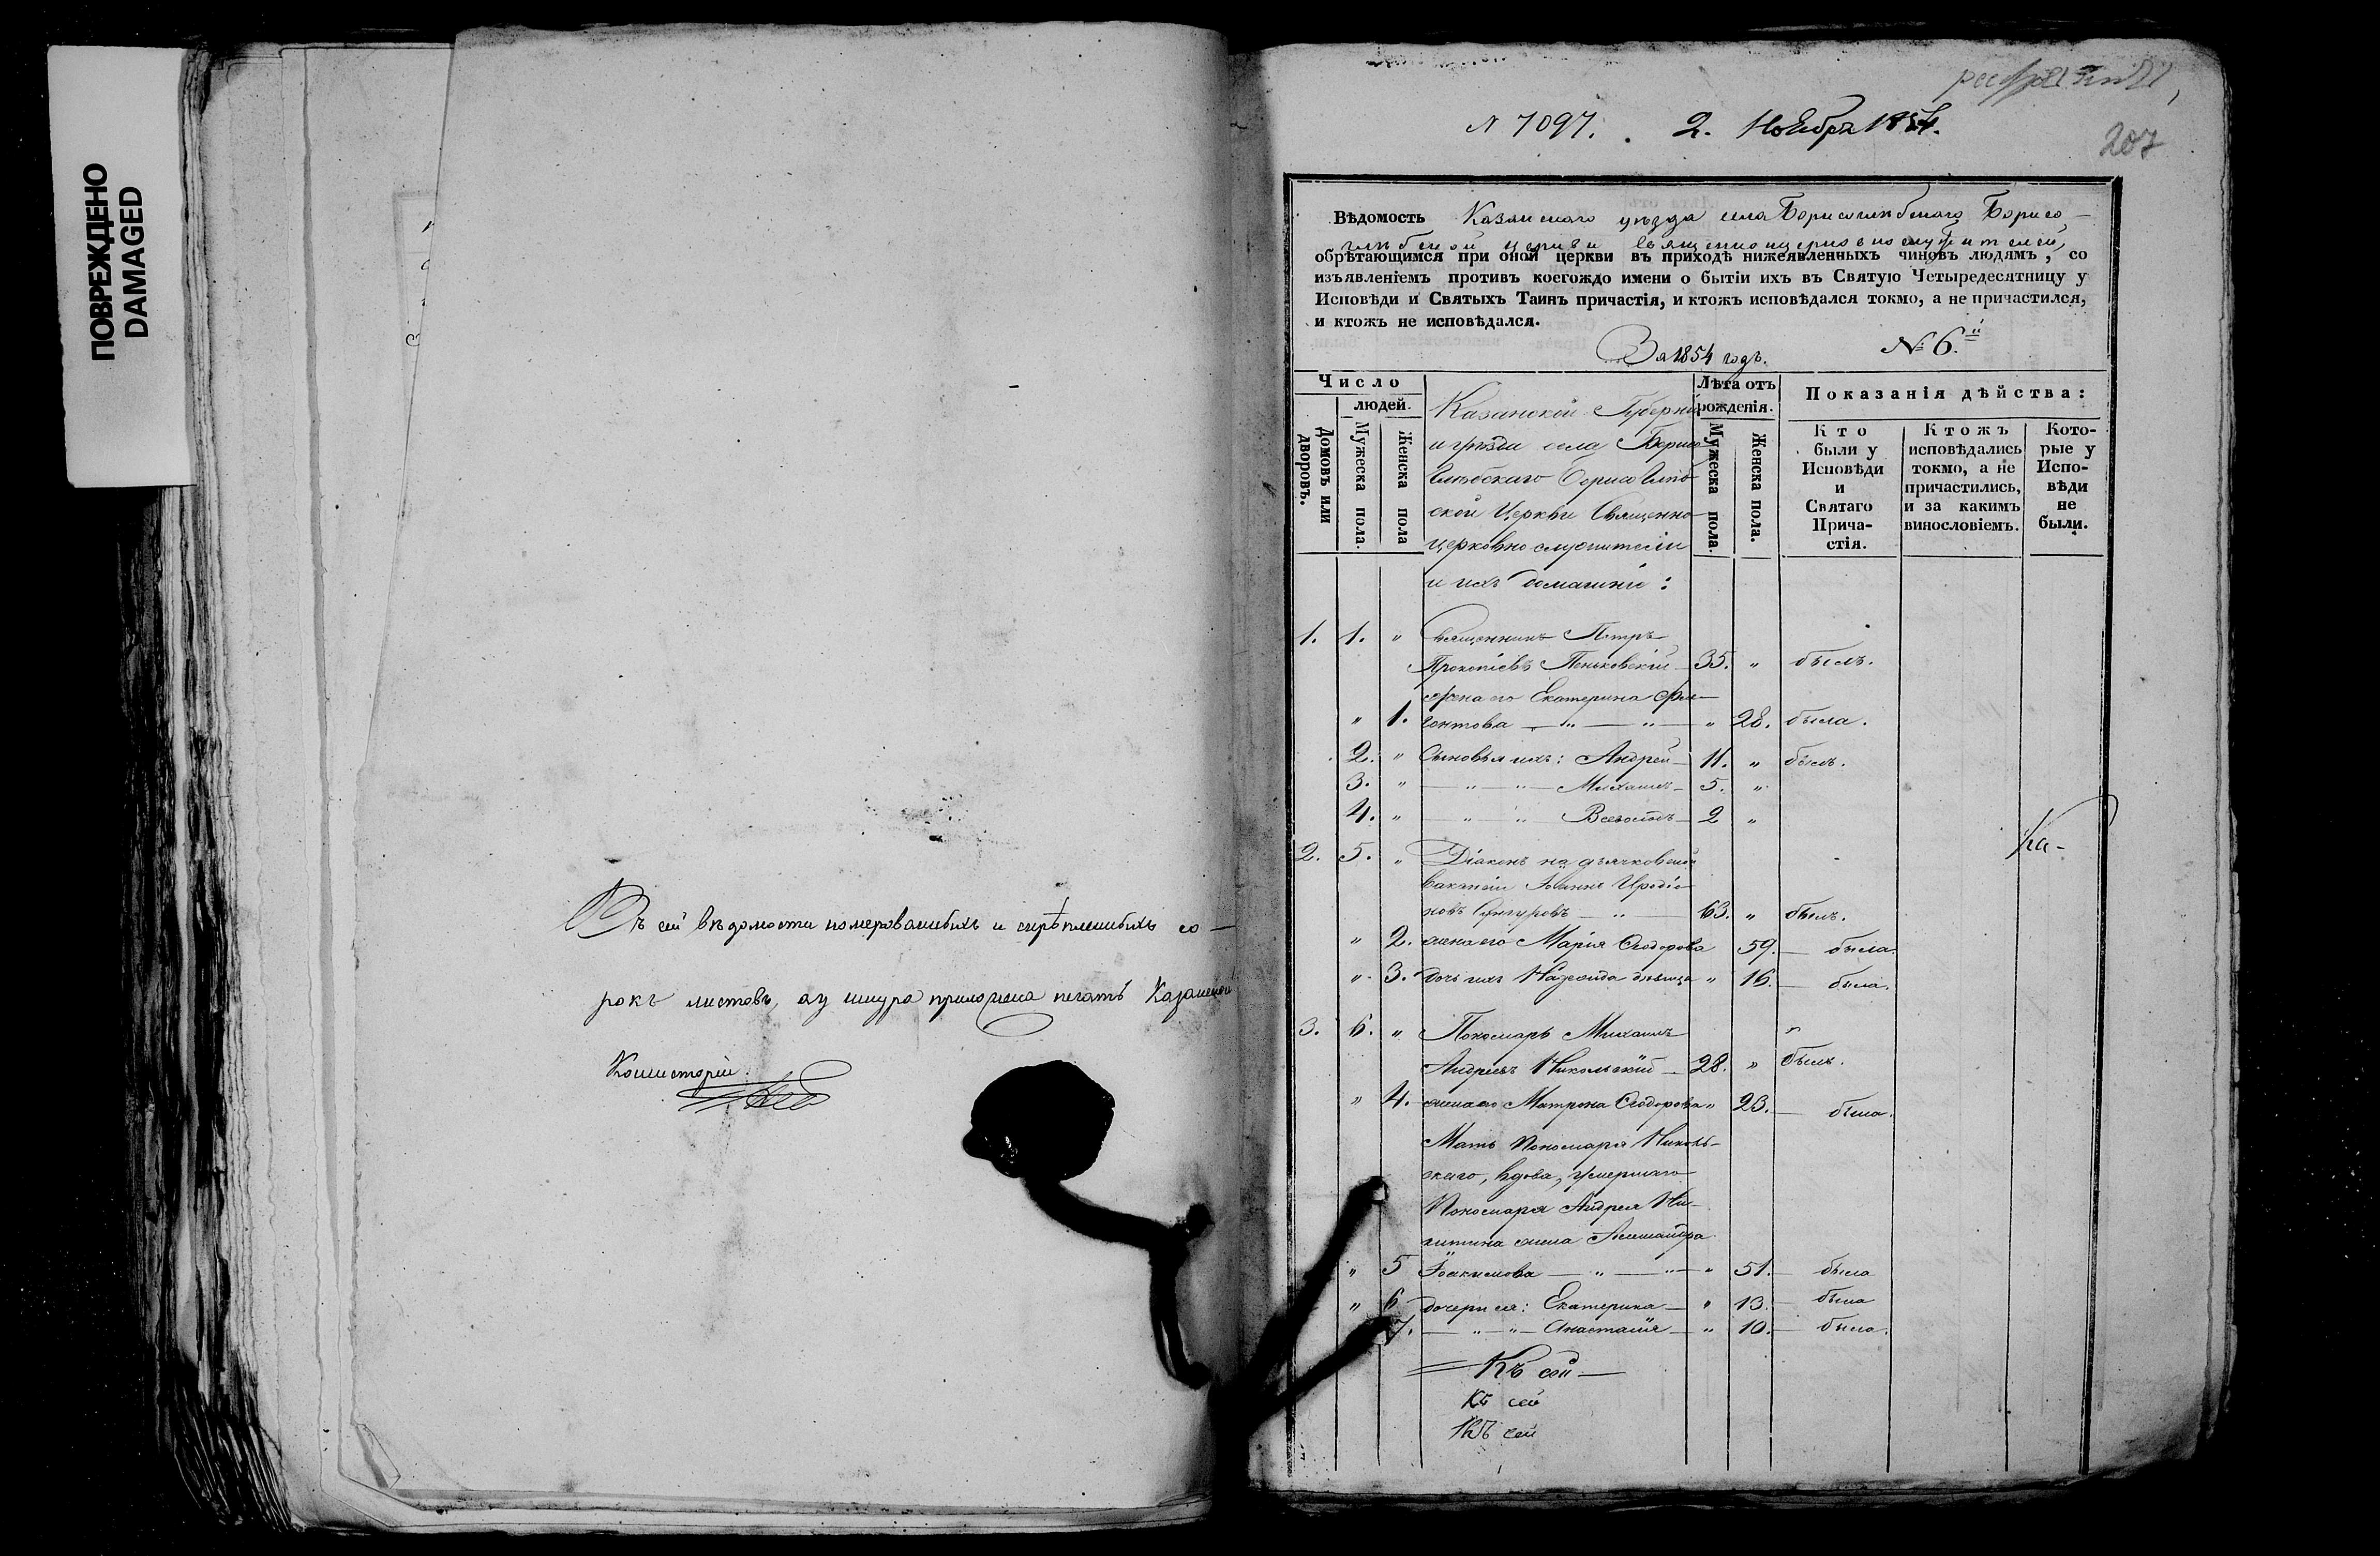 ПОВРЕЖДЕНО
DAMAGED
Въ сей вѣдомости номерованныхъ и скрѣпленныхъ со-
рокъ листовъ, а у шнура приложена печать Казанской
Консисторіи.
№ 7097. 2. Ноября 1854.
207
Вѣдомость Казанскаго уѣзда села Борисоглѣбскаго Борисо-
глѣбской церкви священноцерковнослужителей,
обрѣтающимся при оной церкви въ приходѣ нижеявленныхъ чиновъ людямъ, со
изъявленіемъ противъ коегождо имени о бытіи ихъ въ Святую Четыредесятницу у
Исповѣди и Святыхъ Таинъ причастія, и ктожъ исповѣдался токмо, а не причастился,
и ктожъ не исповѣдался.
За 1854 годъ. № 6.й
Число
людей.
Домовъ или дворовъ.
Мужеска пола.
Женска пола
Казанской Губерніи
и уѣзда села Борисо
Глѣбскаго Борисоглѣб
ской Церкви Священно
церковно служители
и ихъ домашніе:
Лѣта отъ
рожденія.
Мужеска пола.
Женска пола.
Показанія дѣйства:
Кто
были у
Исповѣди
и
Святаго
Прича-
стія.
Ктожъ
исповѣдались
токмо, а не
причастились,
и за какимъ
винословіемъ.
Кото-
рые у
Испо-
вѣди
не
были.
1. 1. „ Священникъ Петръ
Прокопіевъ Пеньковскій 35. „ былъ.
жена его Екатерина Фле-
„ 1. гонтова — „ — „ — „ 28. была.
2. „ Сыновья ихъ: Андрей — 11. „ былъ.
3. „ — „ — „ — Михаилъ — 5. „
4. „ — „ — „ Всеволодъ — 2 „
Ка-
2. 5. „ Діаконъ на дьячковской
вакансіи Іоаннъ Иродіо
новъ Сунгуровъ — „ 63. „ былъ.
„ 2. жена его Марія Ѳеодорова 59. — была.
„ 3. дочь ихъ Надежда дѣвица „ 16. — была.
3. 6. „ Пономарь Михаилъ
Андреевъ Никольскій — 28. „ былъ.
„ 4. жена его Матрона Ѳеодорова „ 23. — была.
Мать Пономаря Николь-
скаго, вдова, умершаго
Пономаря Андрея Ни-
китина жена Александра
„ 5 Іоакимова — „ — „ — „ 51. — была
„ 6 дочери ея: Екатерина — „ 13. — была
7. — „ — „ — Анастасія — „ 10. — была.
Къ сей
Къ сей
Къ сей